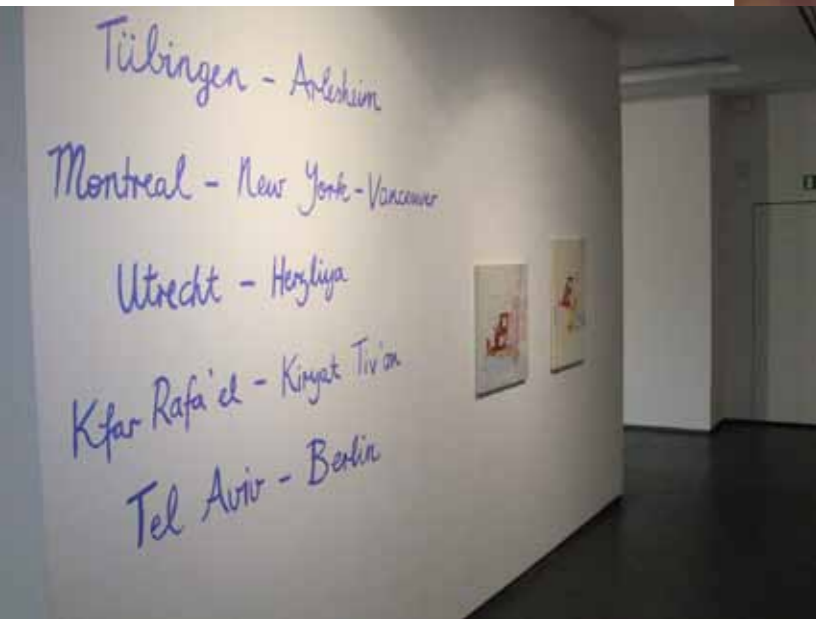 Tübingen - Arlesheim
Montreal - New York - Vancouver
Utrecht - Herzliya
Kfar Rafa'el - Kiryat Tiv'on
Tel Aviv - Berlin